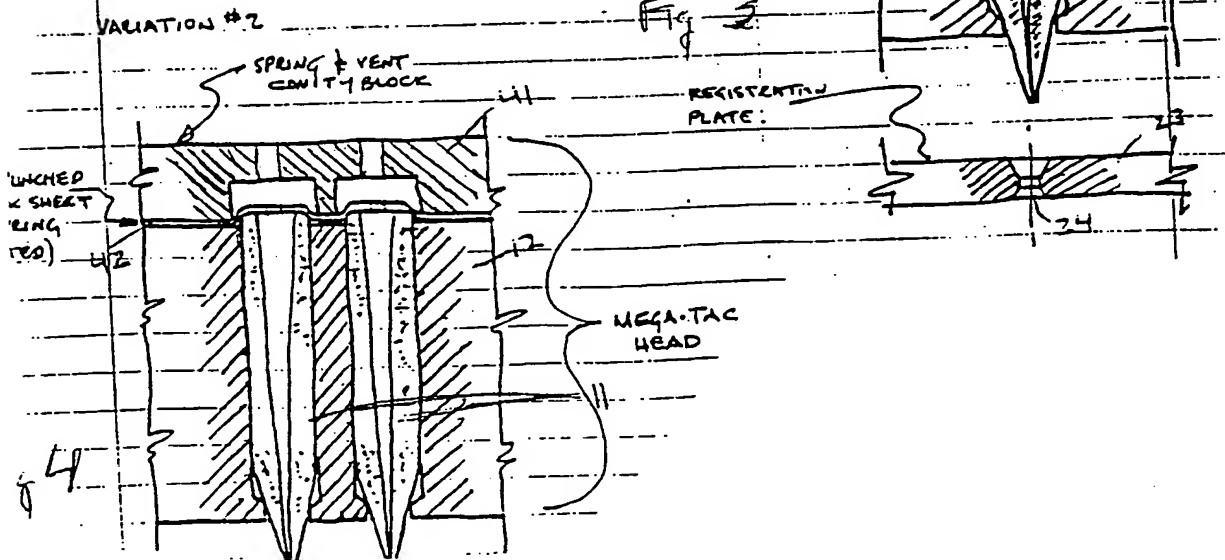 VARIATION #2
Fig 2
SPRING & VENT
CAVITY BLOCK
41
REGISTRATION
PLATE:
23
24
UNCHED
K SHEET
RING
TED)
42
12
MEGA-TAC
HEAD
11
g 4